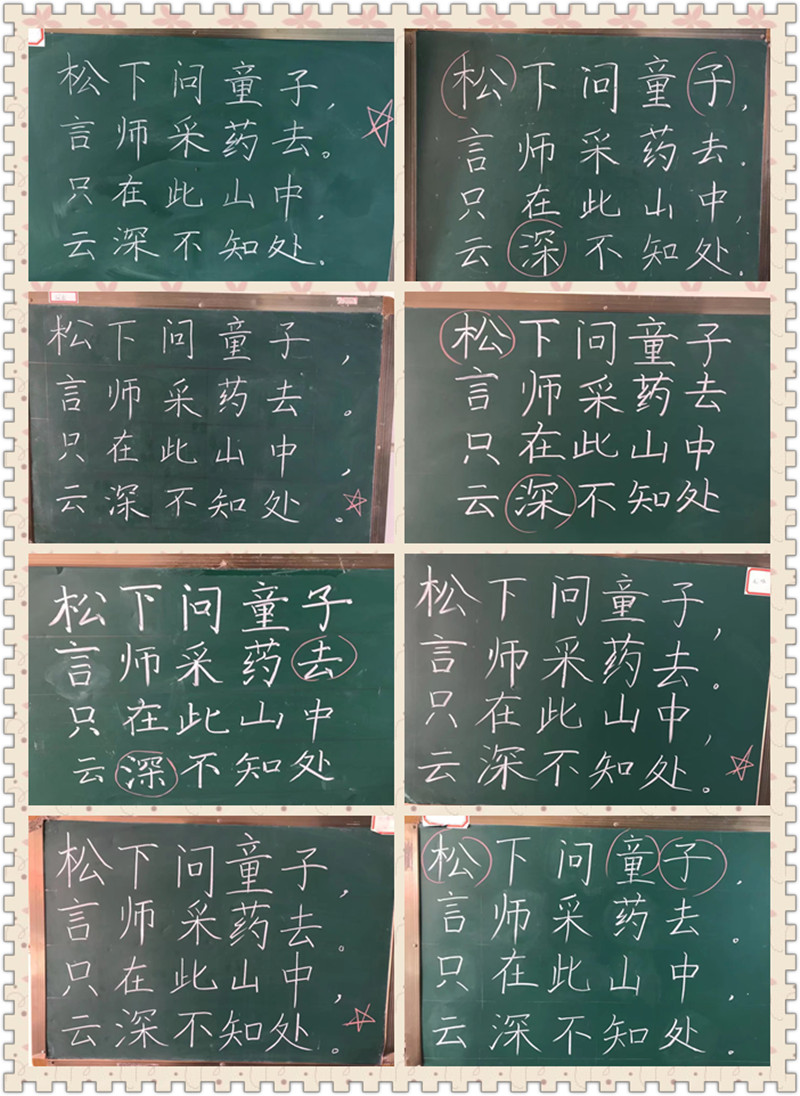 松下问童子，
言师采药去。
只在此山中，
云深不知处。
松下问童子，
言师采药去.
只在此山中，
云深不知处.
松下问童子，
言师采药去。
只在此山中，
云深不知处。
松下问童子
言师采药去
只在此山中
云深不知处
松下问童子
言师采药去
只在此山中
云深不知处
松下问童子，
言师采药去。
只在此山中，
云深不知处。
松下问童子，
言师采药去。
只在此山中，
云深不知处。
松下问童子，
言师采药去。
只在此山中，
云深不知处。